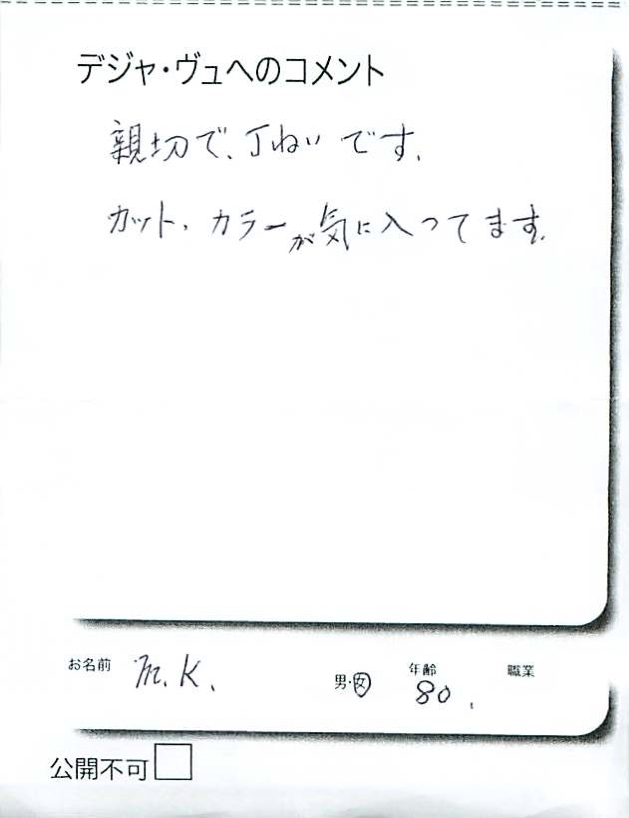 デジャ・ヴュへのコメント
親切で、丁ねいです。
カット、カラーが気に入ってます。
お名前 M.K. 男・女 年齢 80. 職業
公開不可